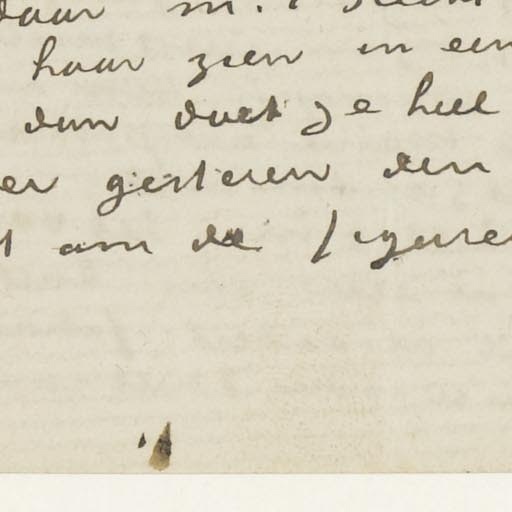 daar
haar zien in een
dan doet ze heel
er gisteren den
t om de figuren